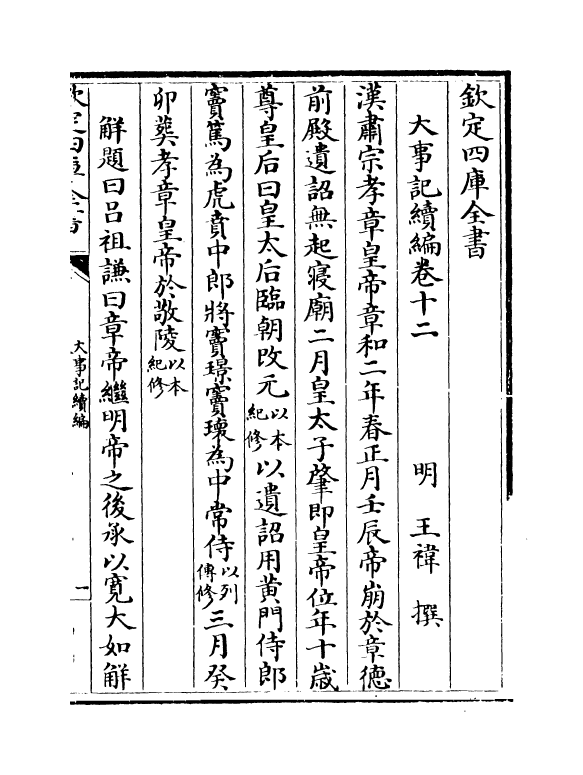 欽定四庫全書
大事記續編卷十二　明　王禕　撰
漢肅宗孝章皇帝章和二年春正月壬辰帝崩於章徳
前殿遺詔無起寝廟二月皇太子肇即皇帝位年十歳
尊皇后曰皇太后臨朝改元以本紀修以遺詔用黄門侍郎
竇篤為虎賁中郎將竇璟竇瓌為中常侍以列傳修三月癸
卯葬孝章皇帝於敬陵以本紀修
解題曰吕祖謙曰章帝繼明帝之後承以寛大如解
欽定四庫全書
大事記續編
一